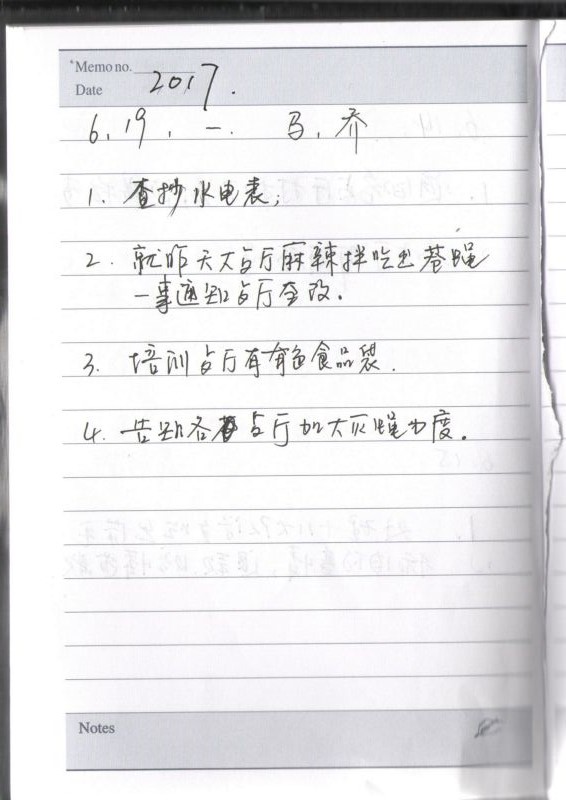 *Memo no.
Date 2017.
6.19. 一. 马.乔
1. 查抄水电表;
2. 就昨天大与厅麻辣拌吃出苍蝇
一事通知与厅查改.
3. 培训与厅有有色食品袋.
4. 告知各与厅加大灭蝇力度.
Notes